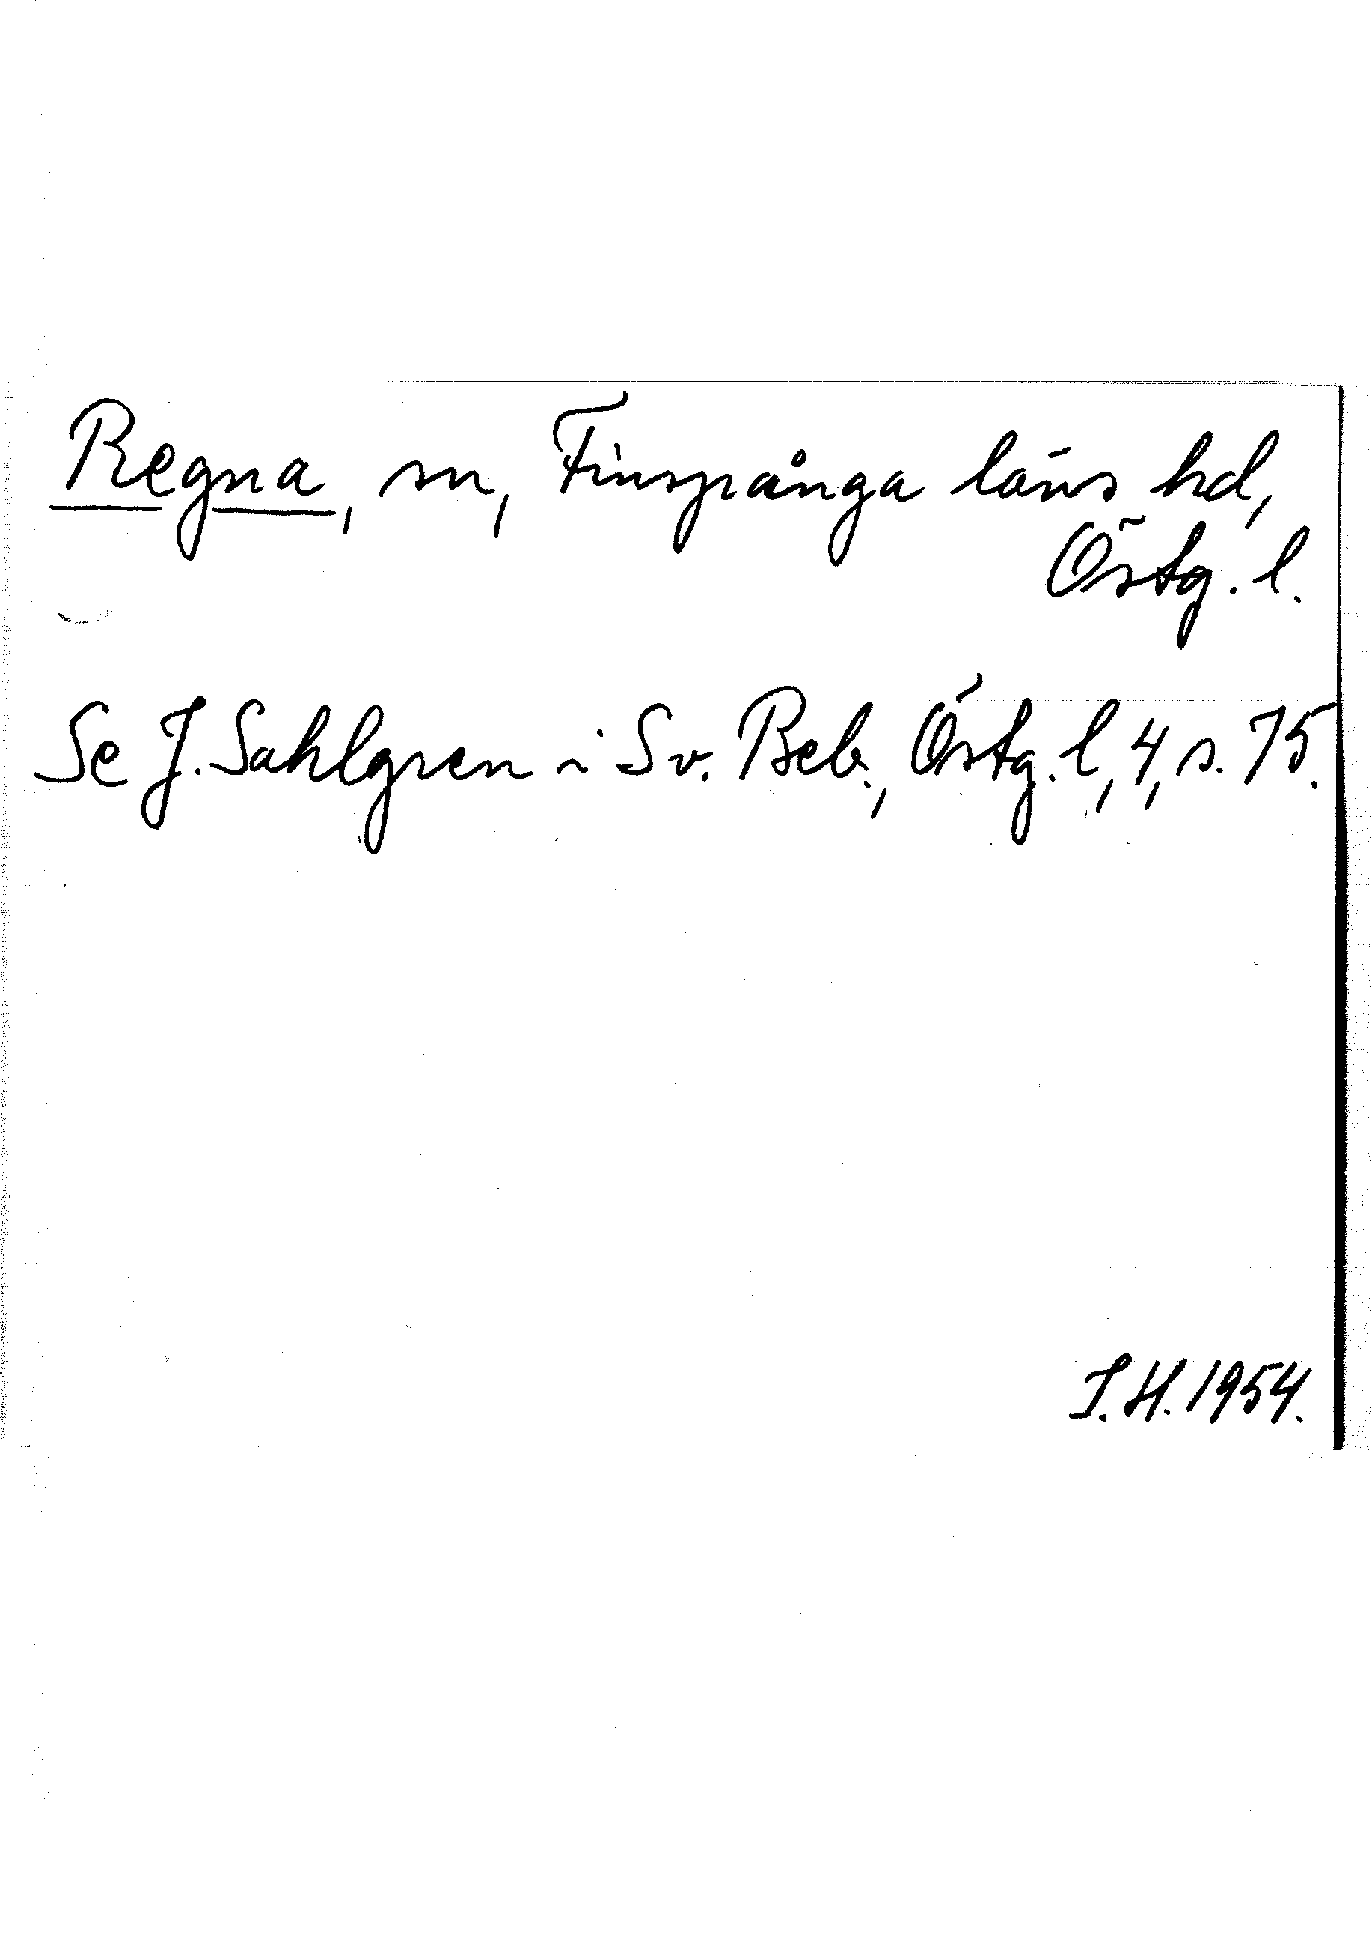 Regna, sn, Finspånga läns hd,
Östg. l.
Se J. Sahlgren i Sv. Beb., Östg. l, 4, s. 75.
I. H. 1954.